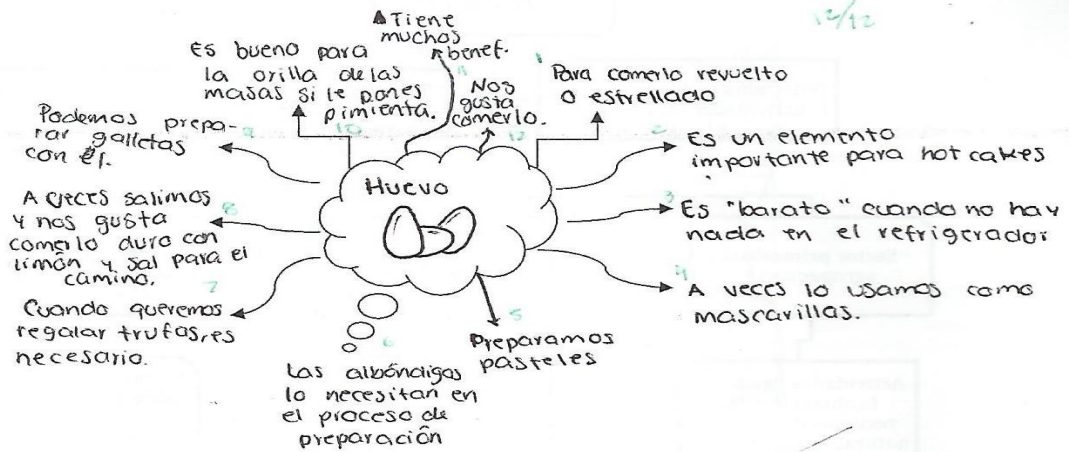 12/12
Huevo
1
Para comerlo revuelto
o estrellado
2
Es un elemento
importante para hot cakes
3
Es "barato" cuando no hay
nada en el refrigerador
4
A veces lo usamos como
mascarillas.
5
Preparamos
pasteles
6
Las albóndigas
lo necesitan en
el proceso de
preparación
7
Cuando queremos
regalar trufas, es
necesario.
8
A veces salimos
y nos gusta
comerlo duro con
limón y sal para el
camino.
9
Podemos prepa-
rar galletas
con él.
10
Es bueno para
la orilla de las
masas si le pones
pimienta.
11
Tiene
muchos
benef.
12
Nos
gusta
comerlo.